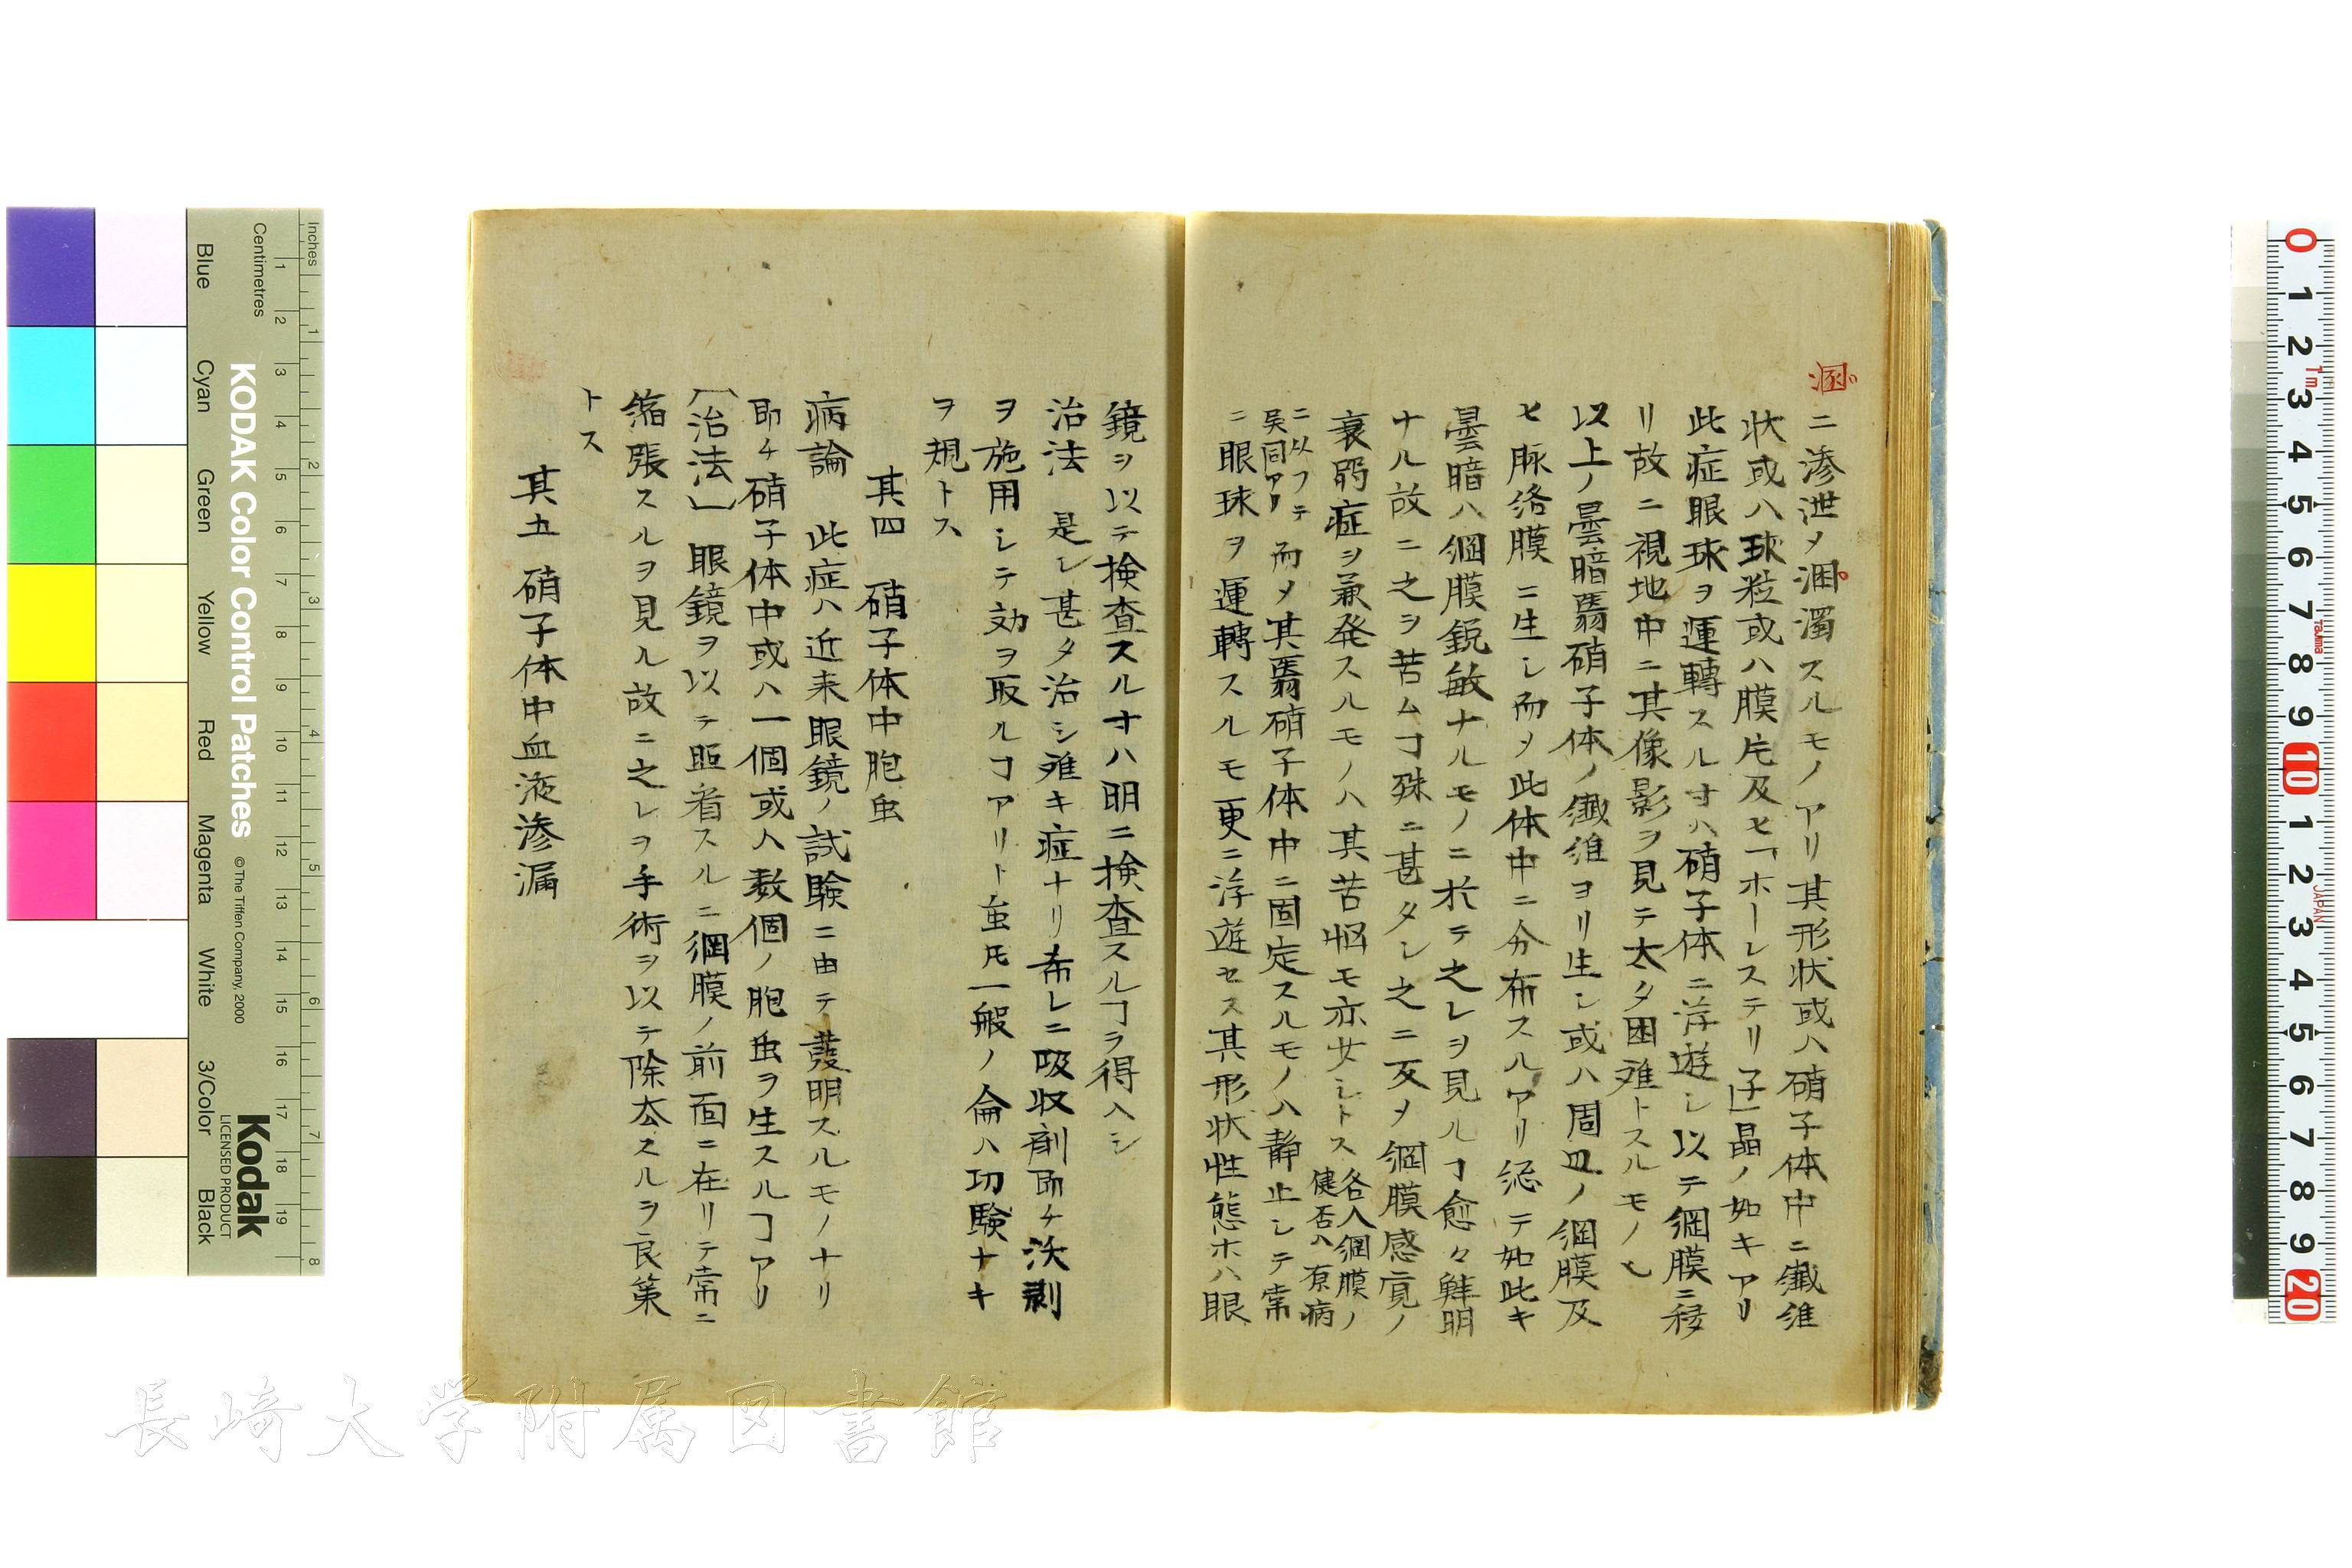 溷
ニ滲泄メ溷濁スルモノアリ其形状或ハ硝子体中ニ纎維
状或ハ球粒或ハ膜片及ヒ「ホーレステリ子」晶ノ如キアリ
此症眼球ヲ運轉スルオハ硝子体ニ浮遊シ以テ網膜ニ移
リ故ニ視地中ニ其像影ヲ見テ太タ困难トスルモノヒ
以上ノ曇暗翳硝子体ノ纎維ヨリ生シ或ハ周囲ノ網膜及
ヒ脉絡膜ニ生シ而メ此体中ニ分布スルアリ総テ如此キ
曇暗ハ網膜鋭敏ナルモノニ於テ之レヲ見ルヿ愈々鮮明
ナル故ニ之ヲ苦ムヿ殊ニ甚タシ之ニ反メ網膜感覚ノ
衰弱症ヲ兼発スルモノハ其苦悩モ亦少シトス 各人網膜ノ
健否ハ原病
ニ以フテ
異同アリ 而メ其翳硝子体中ニ固定スルモノハ静止シテ常
ニ眼球ヲ運轉スルモ更ニ浮遊セス其形状性態ホハ眼
鏡ヲ以テ検査スルオハ明ニ検査スルヿヲ得ヘシ
治法 是レ甚タ治シ难キ症ナリ希レニ吸収剤即チ沃剥
ヲ施用シテ効ヲ取ルヿアリト虽氏一般ノ侖ハ功験ナキ
ヲ規トス
其四 硝子体中胞虫
病論 此症ハ近来眼鏡ノ試験ニ由テ發明スルモノナリ
即チ硝子体中或ハ一個或ハ数個ノ胞虫ヲ生スルヿアリ
「治法」 眼鏡ヲ以テ照着スルニ網膜ノ前面ニ在リテ常ニ
縮張スルヲ見ル故ニ之レヲ手術ヲ以テ除去スルヲ良策
トス
其五 硝子体中血液滲漏
長崎大学附属図書館
KODAK Color Control Patches
© The Tiffen Company, 2000
Kodak
LICENSED PRODUCT
Inches
Centimetres
Blue
Cyan
Green
Yellow
Red
Magenta
White
3/Color
Black
1 2 3 4 5 6 7 8 9 10 11 12 13 14 15 16 17 18 19
1 2 3 4 5 6 7 8
0 1 2 3 4 5 6 7 8 9 10 1 2 3 4 5 6 7 8 9 20
1m
Tajima
JAPAN